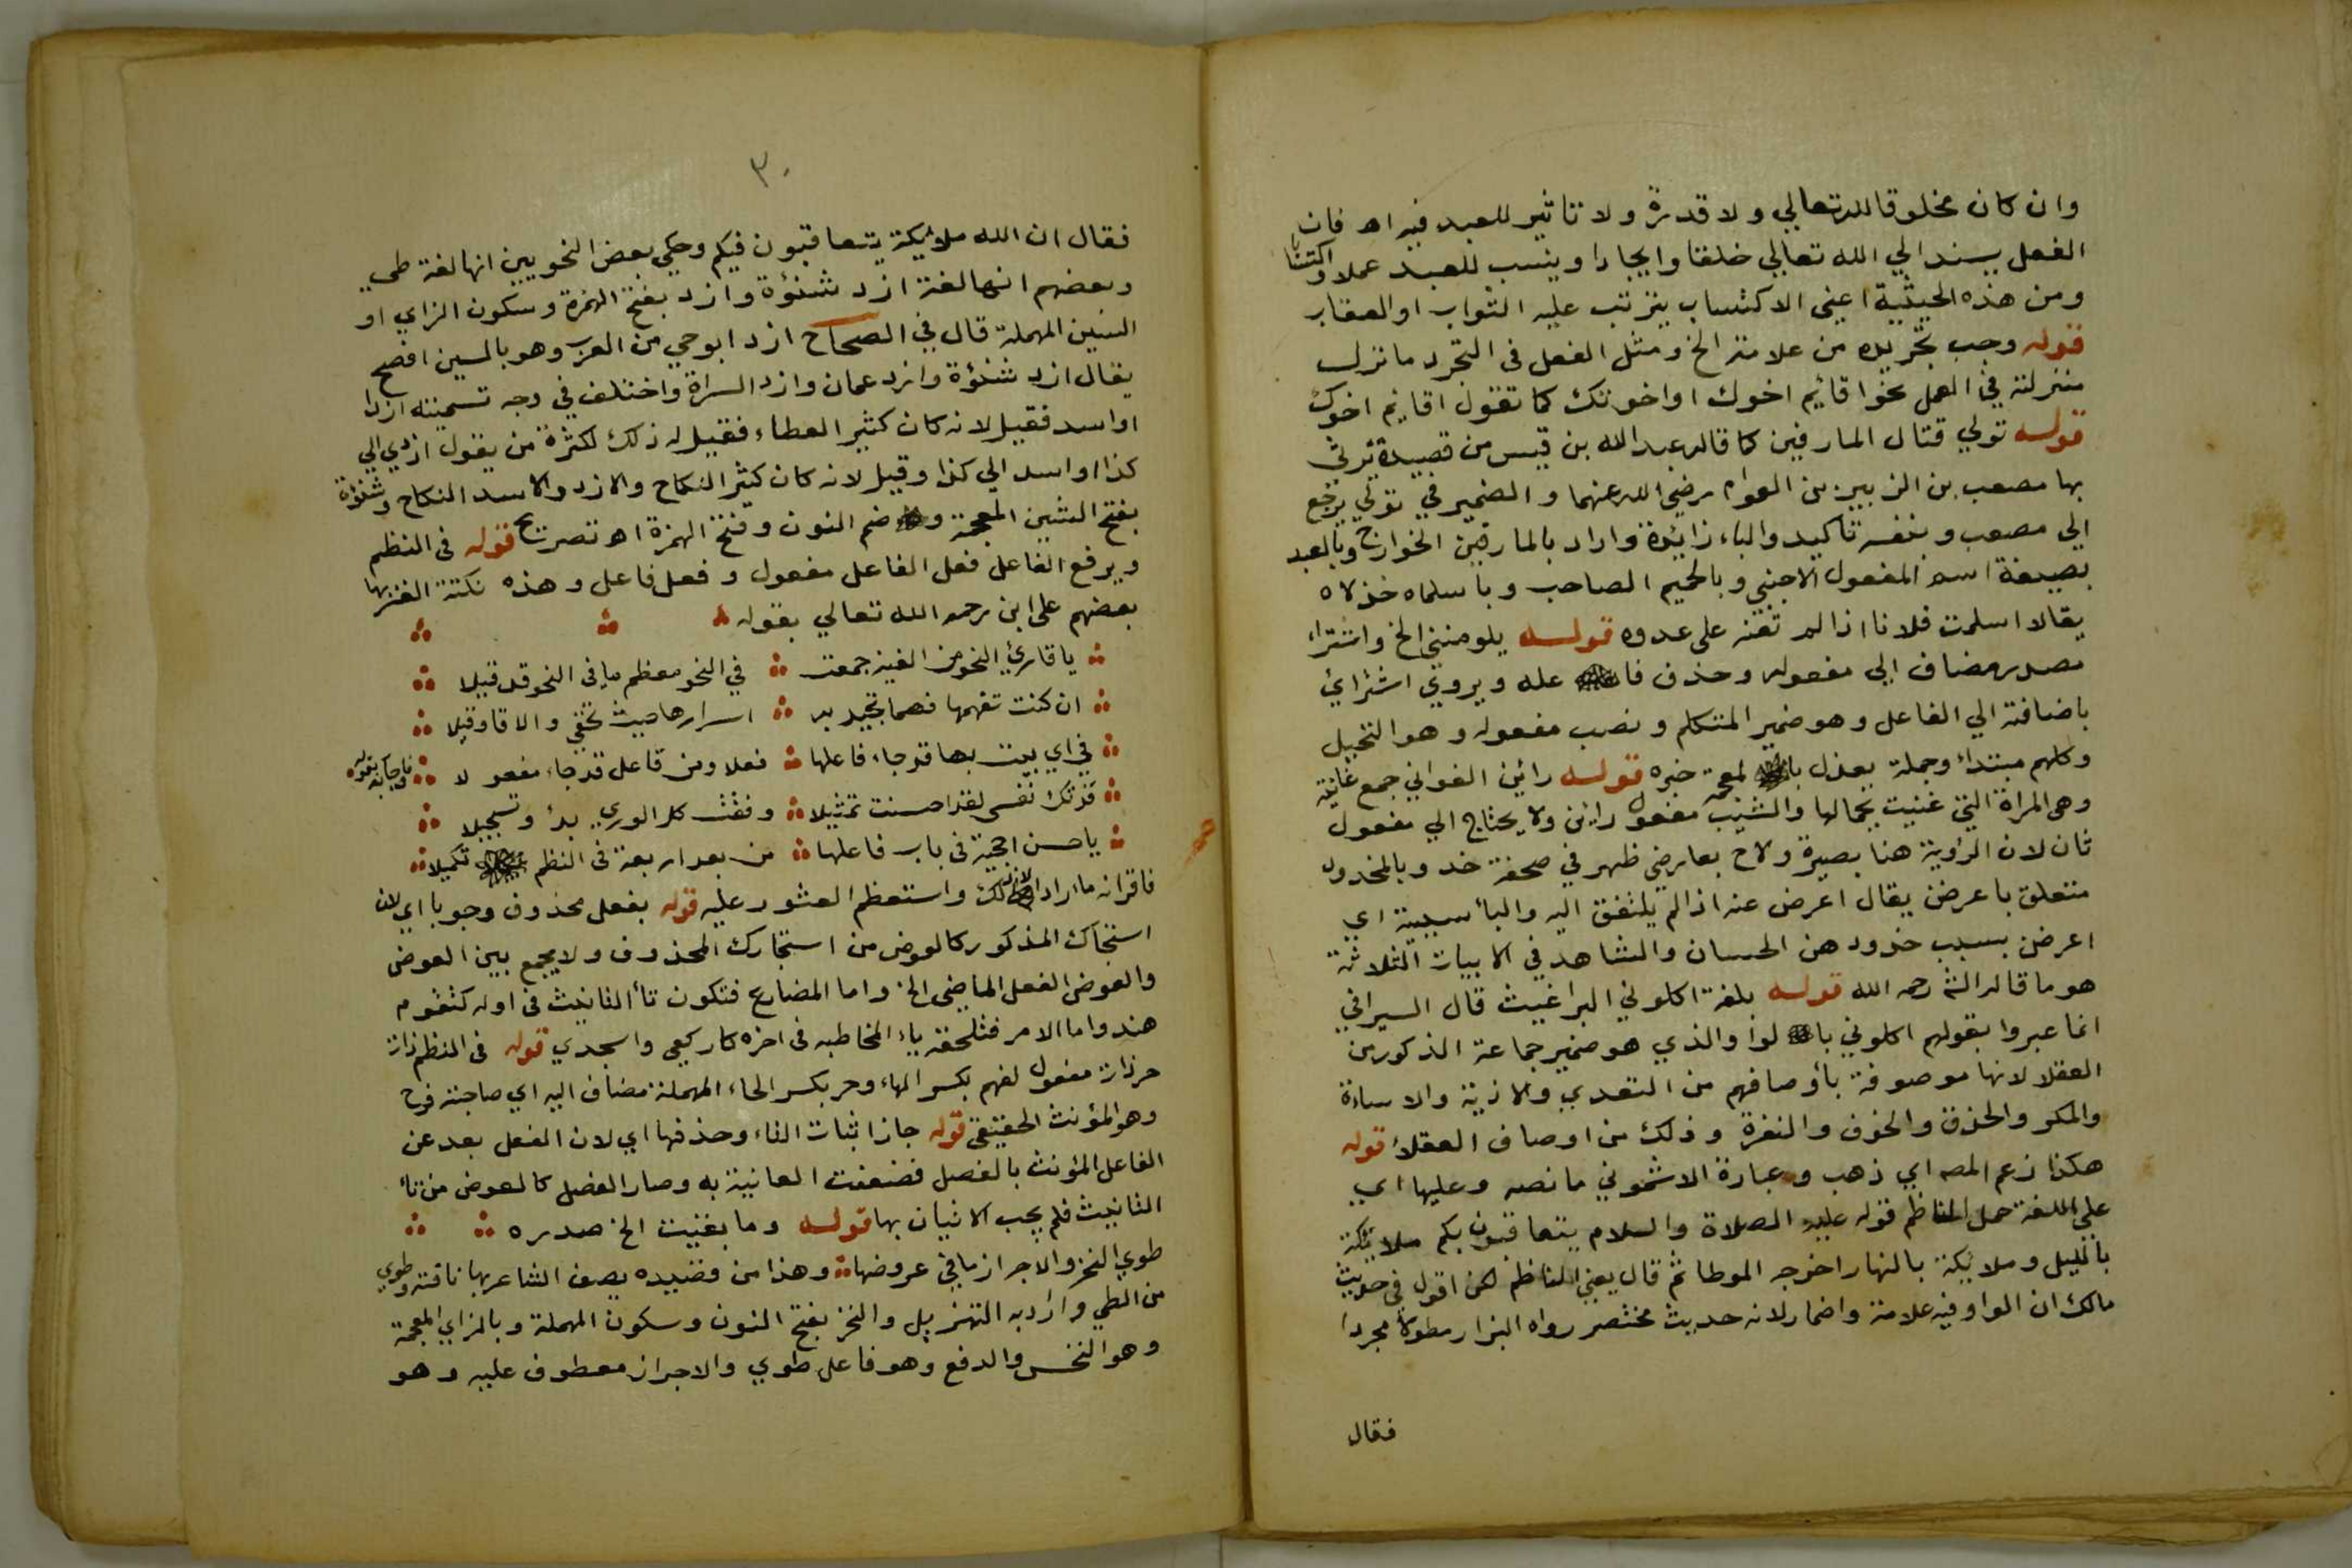 وان كان مخلوقا لله تعالي ولا قدرة ولا تاثير للعبد فيه اه فان
الفعل يسند الي الله تعالي خلقا وايجادا وينسب للعبد عملا واكتسابا
ومن هذه الحيثية اعني الاكتساب يترتب عليه الثواب او العقاب
قوله وجب تجريده من علامة الخ ومثل الفعل فى التجرد ما نزل
منزلته في العمل نحو اقائيم اخوك او اخوتك كما تقول اقائم اخوك
قوله تولي قتال المارقين كما قاله عبد الله بن قيس من قصيدة يرثي
بها مصعب بن الزبير بن العوام رضي الله عنهما والضمير في تولي يرجع
الي مصعب وبنفسه تاكيد والباء زائدة واراد بالمارقين الخوارج وبالمبعد
بصيغة اسم المفعول الاجنبي وبالحميم الصاحب وباسلماه خذلاه
يقالا اسلمت فلانا اذا لم تعنه على عدوه قوله يلومنني الخ واشتراء
مصدر مضاف الي مفعوله وحذف فا عله ويروي اشترائ
باضافته الي الفاعل وهو ضمير المتكلم ونصب مفعوله وهو النخيل
وكلهم مبتداء وجملة يعذل با لمعجمة خبره قوله رائين الغواني جمع غانية
وهى المراة التي غنيت بجمالها والشيب مفعول رائن ولا يحتاج الي مفعول
ثان لان الرؤية هنا بصيرة ولاح بعارضي ظهر في صحفة خد وبالخدود
متعلق باعرضن يقال اعرض عنه اذا لم يلتفت اليه والبأ سببية اي
اعرضن بسبب خدود هن الحسان والشاهد في الابيات الثلاثة
هو ما قاله الش رحمه الله قوله بلغة اكلوني البراغيث قال السيرافي
انما عبروا بقولهم اكلوني با لواو الذي هو ضمير جماعة الذكور من
العقلا لانها موصوفة بأوصافهم من التعدي والاذية والاساءة
والمكر والحذق والخوف والنفرة وذلك من اوصاف العقلأ قوله
هكذا زعم المصه اي ذهب وعبارة الاشموني ما نصه وعليها اي
علي اللغة حمل الناظم قوله عليه الصلاة والسلام يتعاقبون بكم ملايكة
بالليل وملائكة بالنهار اخرجه الموطا ثم قال يعني الناظم لكن اقول في حديث
مالك ان الواو فيه علامة واضمار لانه حديث مختصر رواه البزار مطولا مجردا
فقال
٣٠
فقال ان الله ملائيكة يتعاقبون فيكم وحكي بعض النحويين انها لغة طي
وبعضهم انها لغة ازد شنؤة وازد بفتح الهمزة وسكون الزاي او
السين المهملة قال في الصحاح ازد ابو حي من العرب وهو بالسين افصح
يقال ازد شنؤة وازد عمان وازد السراة واختلف في وجه تسميته ازدا
او اسد فقيل لانه كان كثير العطاء فقيل له ذلك لكثرة من يقول ازدي الي
كذا او اسد الي كذا وقيل لانه كان كثير النكاح والازد والاسد النكاح وشنؤة
بفتح الشين المعجمة و ضم النون وفتح الهمزة اه تصريح قوله فى النظم
ويرفع الفاعل فعل الفاعل مفعول وفعل فاعل وهذه نكتة الغز بها
بعضهم على ابن رحمه الله تعالي بقوله
يا قارئ النحو من الفية جمعت في النحو معظم ما فى النحو قد قيلا
ان كنت تفهمها فهما تجيد به اسرارها حيث تخفي والاقاوقيلا
في اي بيت بها قد جاء فاعلها فعلا ومن فاعل قد جاء مفعو لا فاجابه بقوله
فدتك نفسى لقد احسنت تمثيلا وفقت كل الوري بدأ وتسجيلا
يا حسن احجية فى باب فاعلها من بعد اربعة فى النظم تكميلا
فاقرانه ما اراد الا ذلك واستعظم العثور عليه قوله بفعل محذوف وجوبا اي لان
استجاك المذكور كالعوض من استجارك المحذوف ولا يجمع بين العوض
والعوض الفعل الماضي الخ واما المضارع فتكون تأ التانيث فى اوله كتقوم
هند واما الامر فتلحقه ياء المخاطبه فى اخره كاركعي واسجدي قوله فى النظم ذات
حر ذات مفعول لفهم بكسر الهاء وحر بكسر الحاء المهملة مضاف اليه اي صاحبة فرج
وهو المؤنث الحقيقي قوله جاز اثبات التاء وحذفها اي لان الفعل بعد عن
الفاعل المؤنث بالفصل فضعفت العانية به وصار الفصل كالعوض من تأ
التانيث فلم يجب الاتيان بها قوله وما بقيت الخ صدره
طوي النحز والاجراز ما في عروضها وهذا من قصيده يصف الشاعر بها ناقته وطوي
من الطي واراد به التهزيل والنحز بفتح النون وسكون المهملة وبالزاي المعجمة
وهو النخس والدفع وهو فاعل طوي والاجراز معطوف عليه وهو